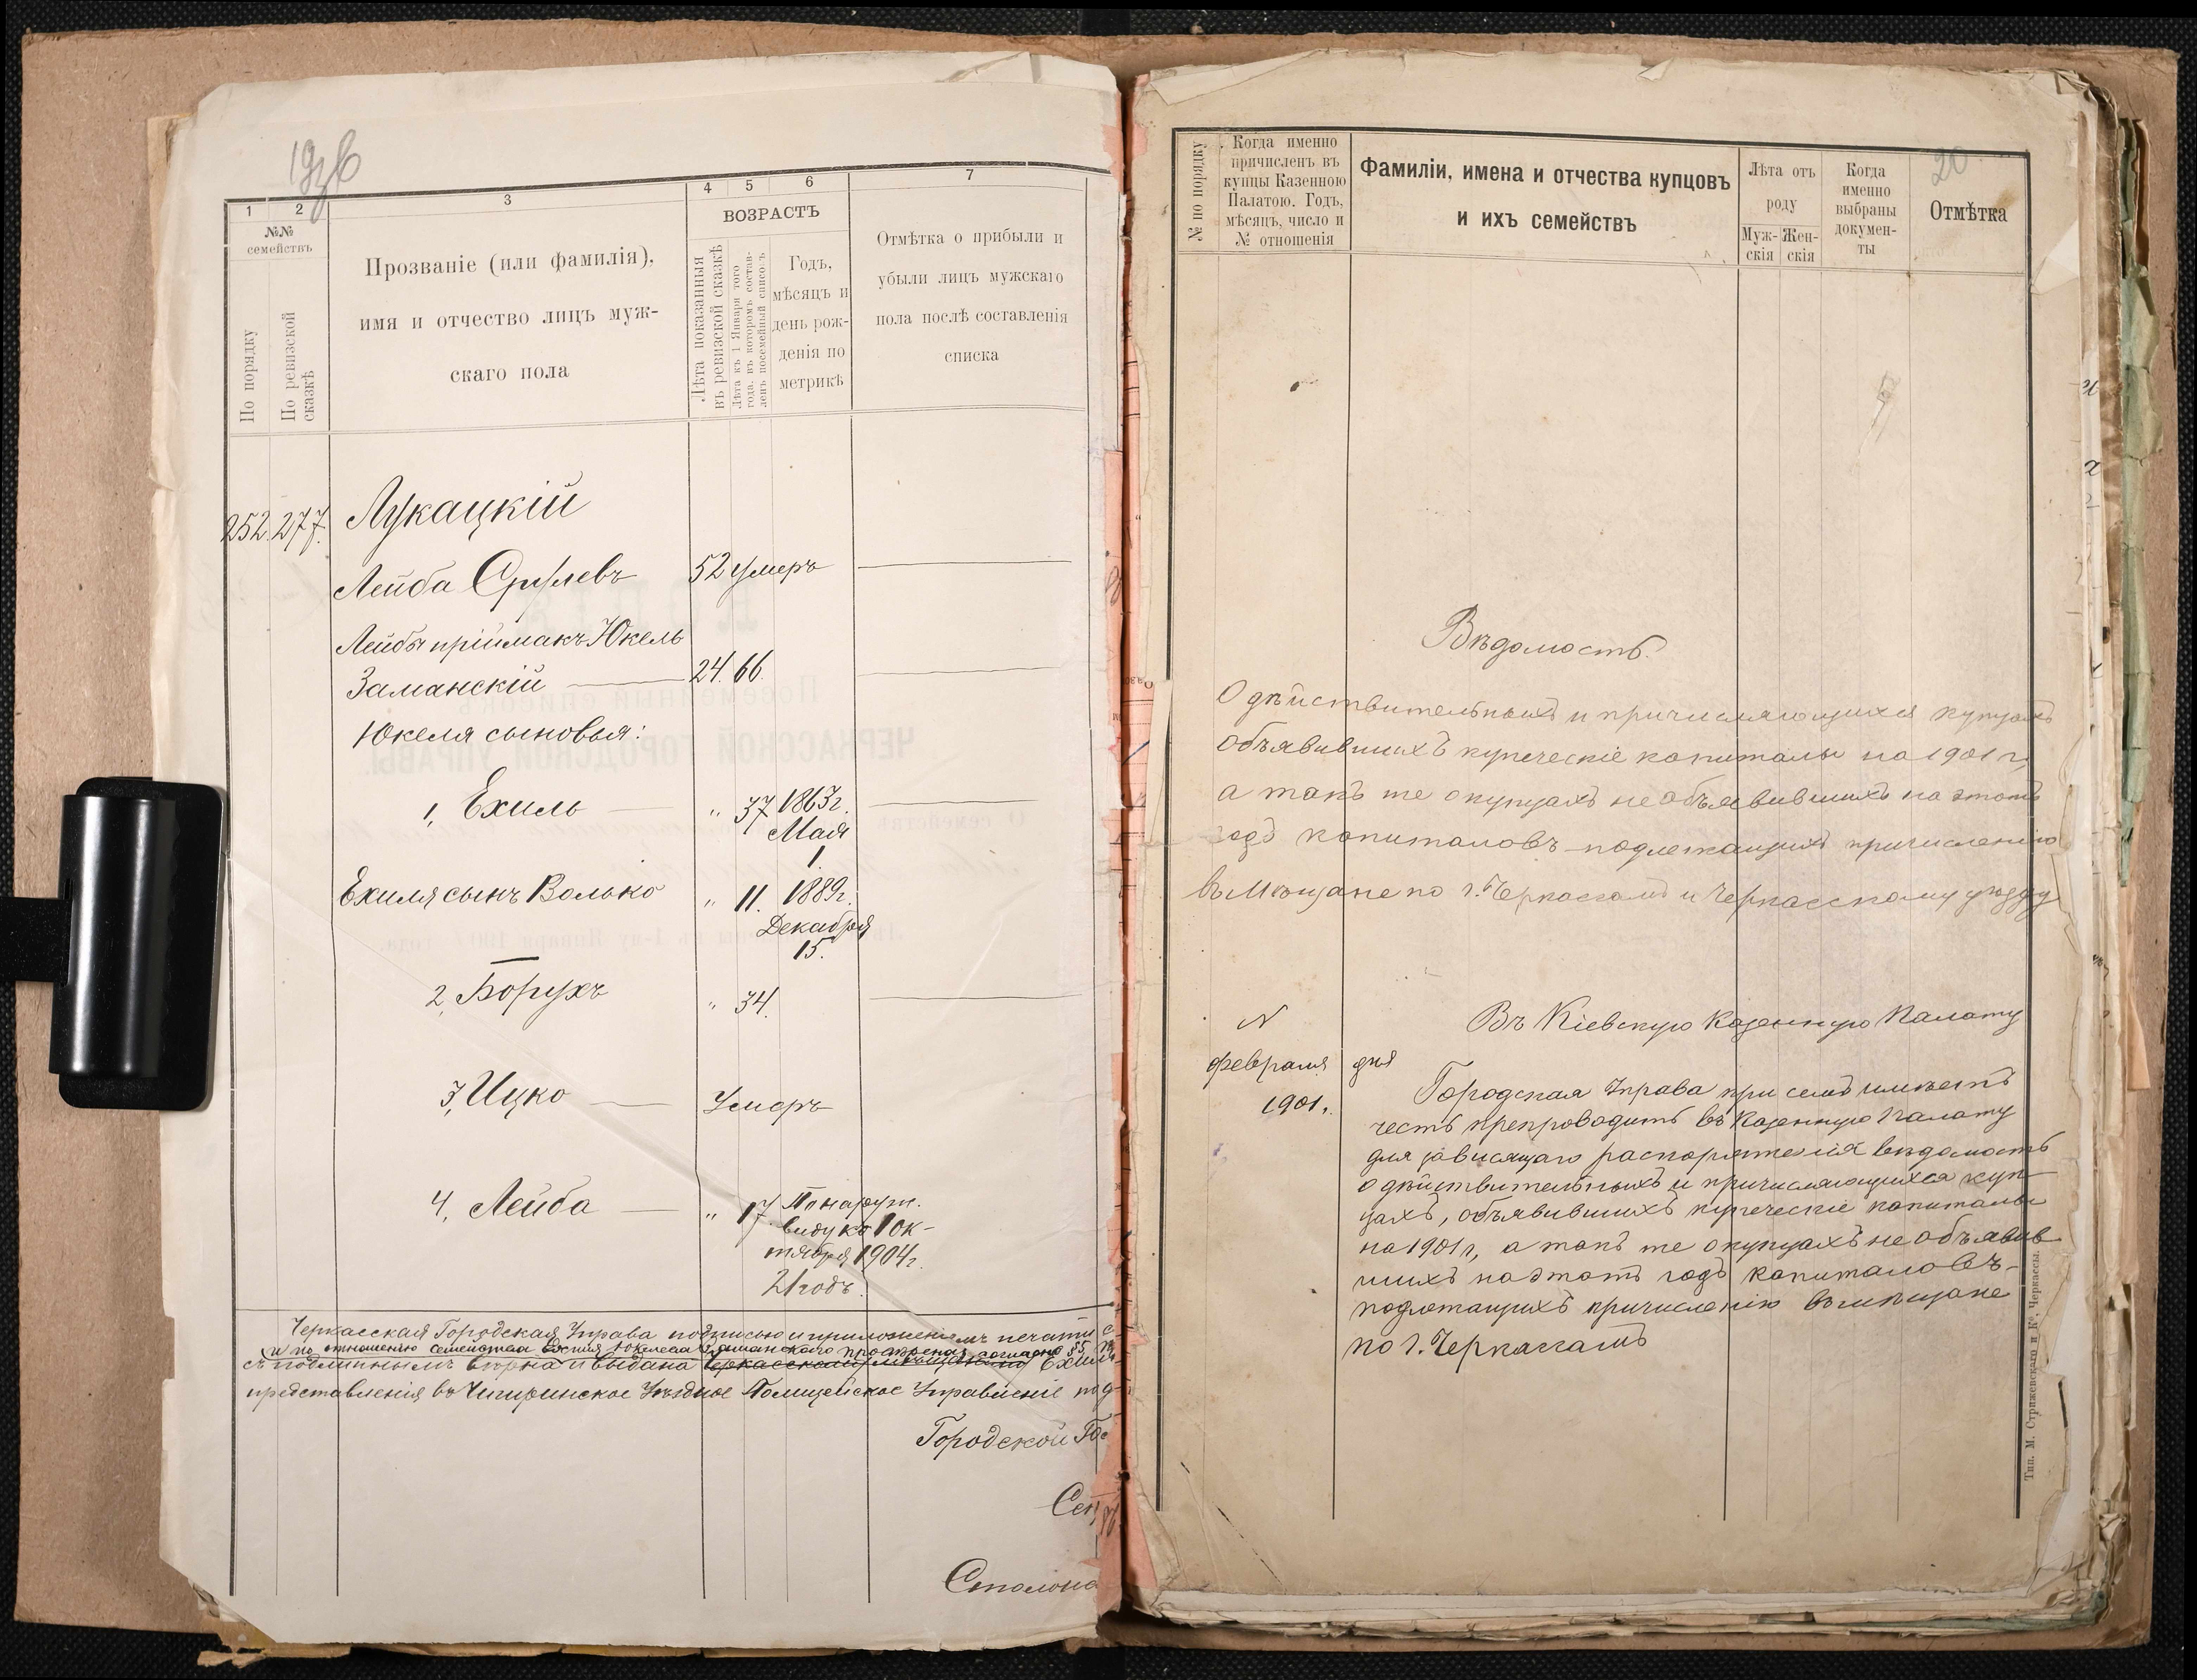 1 2 3 4 5 6 7
№№ семействъ
По порядку
По ревизской сказкѣ
Прозваніе (или фамилія),
имя и отчество лицъ муж-
скаго пола
ВОЗРАСТЪ
Лѣта показанныя въ ревизской сказкѣ
Лѣта къ 1 Января того года, въ которомъ состав-
ленъ посемейный списокъ
Годъ,
мѣсяцъ и
день рож-
денія по
метрикѣ
Отмѣтка о прибыли и
убыли лицъ мужскаго
пола послѣ составленія
списка
252. 277. Лукацкій
Лейба Срулевъ 52 умеръ
Лейбы пріймакъ Юкель
Заманскій 24. 66.
Юкеля сыновья:
1, Ехиль " 37 1863г.
Мая
1.
Ехиля сынъ Волько " 11. 1889г.
Декабря
15.
2, Борухъ " 34.
3, Ицко Умеръ
4, Лейба " 17 По наруж.
виду къ 1 Ок-
тября 1904г.
21 годъ.
Черкасская Городская Управа подписью и приложеніемъ печати с
и по отношенію семейства Ехиля Юкелева Заманскаго провѣрена согласно
съ подлиннымъ вѣрна и выдана Черкасскому мѣщанину Ехилю
представленія въ Чигиринское Уѣздное Полицейское Управленіе под
Городской Го
Сек
Столона
20
№ по порядку
Когда именно
причисленъ въ
купцы Казенною
Палатою. Годъ,
мѣсяцъ, число и
№ отношенія
Фамиліи, имена и отчества купцовъ
и ихъ семействъ
Лѣта отъ
роду
Муж-
скія
Жен-
скія
Когда
именно
выбраны
докумен-
ты
Отмѣтка
Вѣдомость.
О дѣйствительныхъ и причисляющихся купцахъ
объявившихъ купеческіе капиталы на 1901 г,
а такъ же о купцахъ не объявившихъ на этотъ
годъ капиталовъ подлежащихъ причисленію
въ Мѣщане по г. Черкассамъ и Черкасскому уѣзду
N
Февраля дня
1901 г.
Въ Кіевскую Казенную Палату
Городская Управа при семъ имѣетъ
честь препроводить въ Казенную Палату
для зависящаго распоряженія вѣдомость
о дѣйствительныхъ и причисляющихся куп-
цахъ, объявившихъ купеческіе капиталы
на 1901 г, а такъ же о купцахъ не объявив
шихъ на этотъ годъ капиталовъ-
подлежащихъ причисленію въ мѣщане
по г. Черкассамъ
Тип. М. Стрижевскаго и Кº, Черкассы.